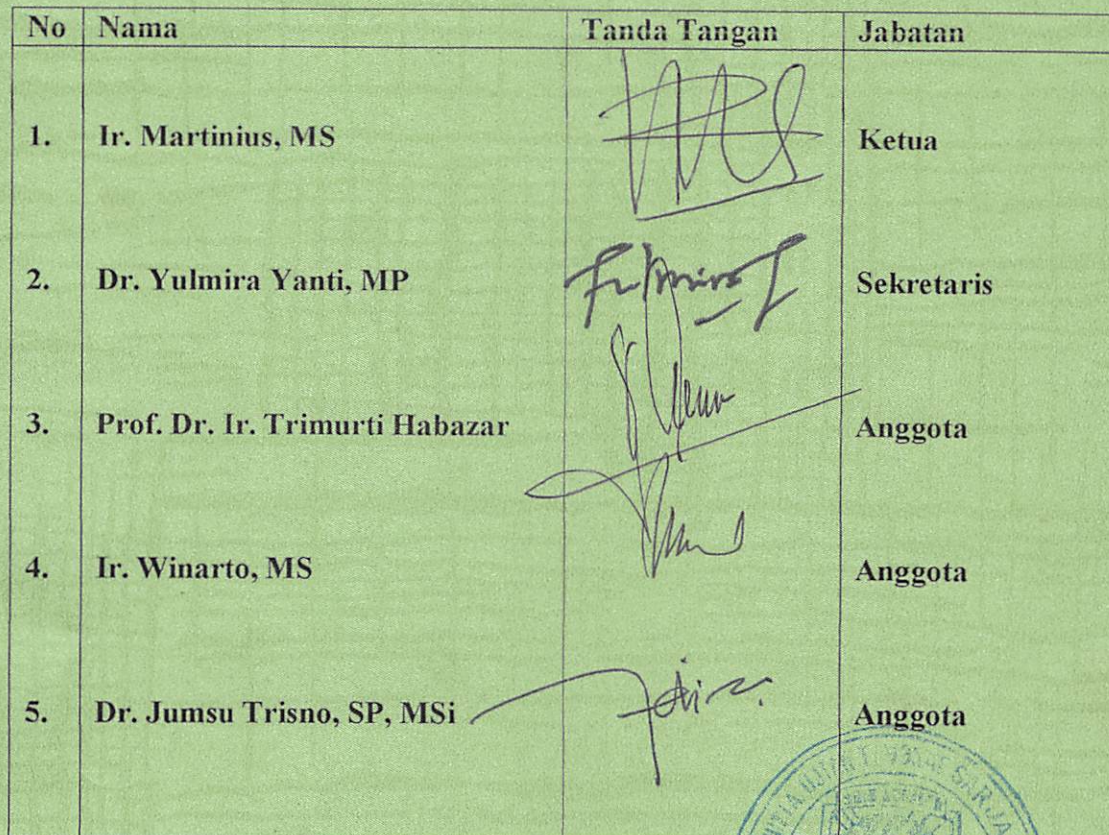 No Nama Tanda Tangan Jabatan
1. Ir. Martinius, MS Ketua
2. Dr. Yulmira Yanti, MP Sekretaris
3. Prof. Dr. Ir. Trimurti Habazar Anggota
4. Ir. Winarto, MS Anggota
5. Dr. Jumsu Trisno, SP, MSi Anggota